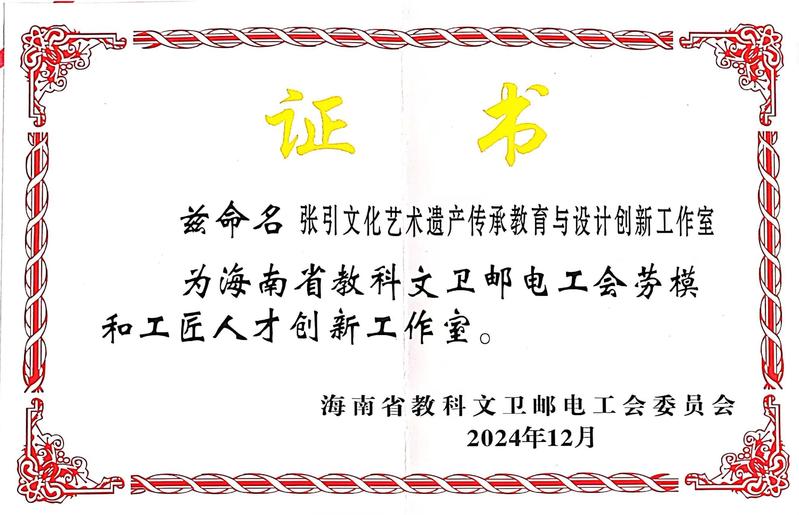 证书
兹命名 张引文化艺术遗产传承教育与设计创新工作室
为海南省教科文卫邮电工会劳模
和工匠人才创新工作室。
海南省教科文卫邮电工会委员会
2024年12月